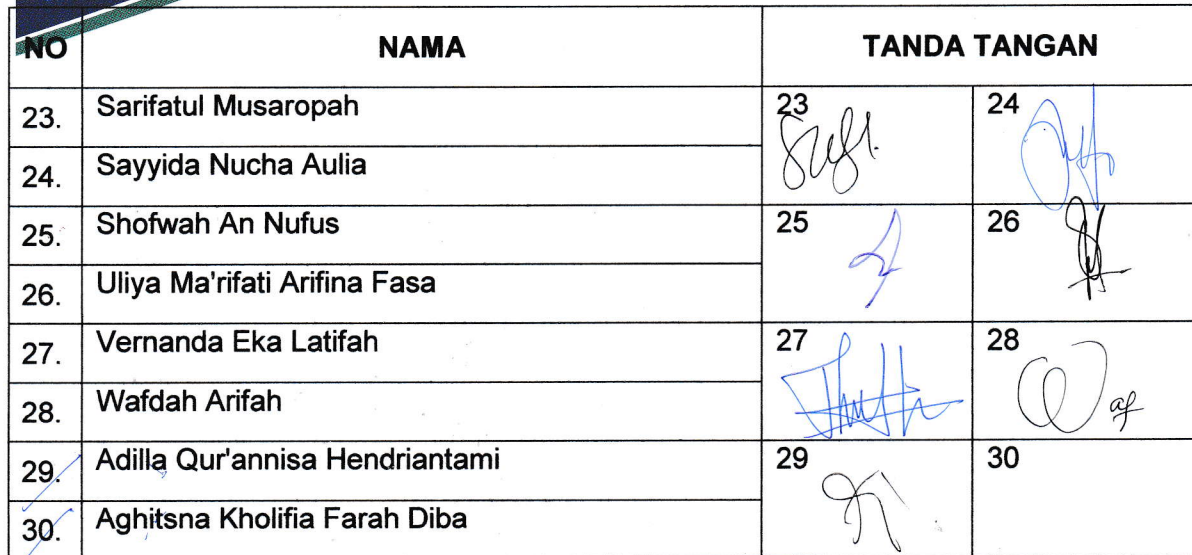 NO NAMA TANDA TANGAN
23. Sarifatul Musaropah 23 24
24. Sayyida Nucha Aulia
25. Shofwah An Nufus 25 26
26. Uliya Ma'rifati Arifina Fasa
27. Vernanda Eka Latifah 27 28
28. Wafdah Arifah
29. Adilla Qur'annisa Hendriantami 29 30
30. Aghitsna Kholifia Farah Diba